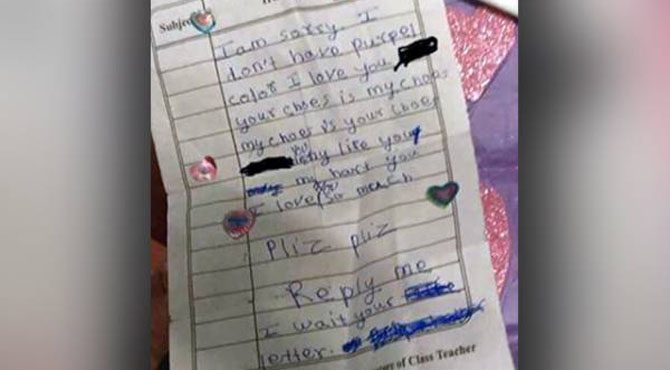 Subje
I am sorry I
don't have purpel
color I love you
your choes is my choes
my choes is your choes
my life you
my hart you
I love you so much
Pliz pliz
Reply me
I wait your
letter.
of Class Teacher